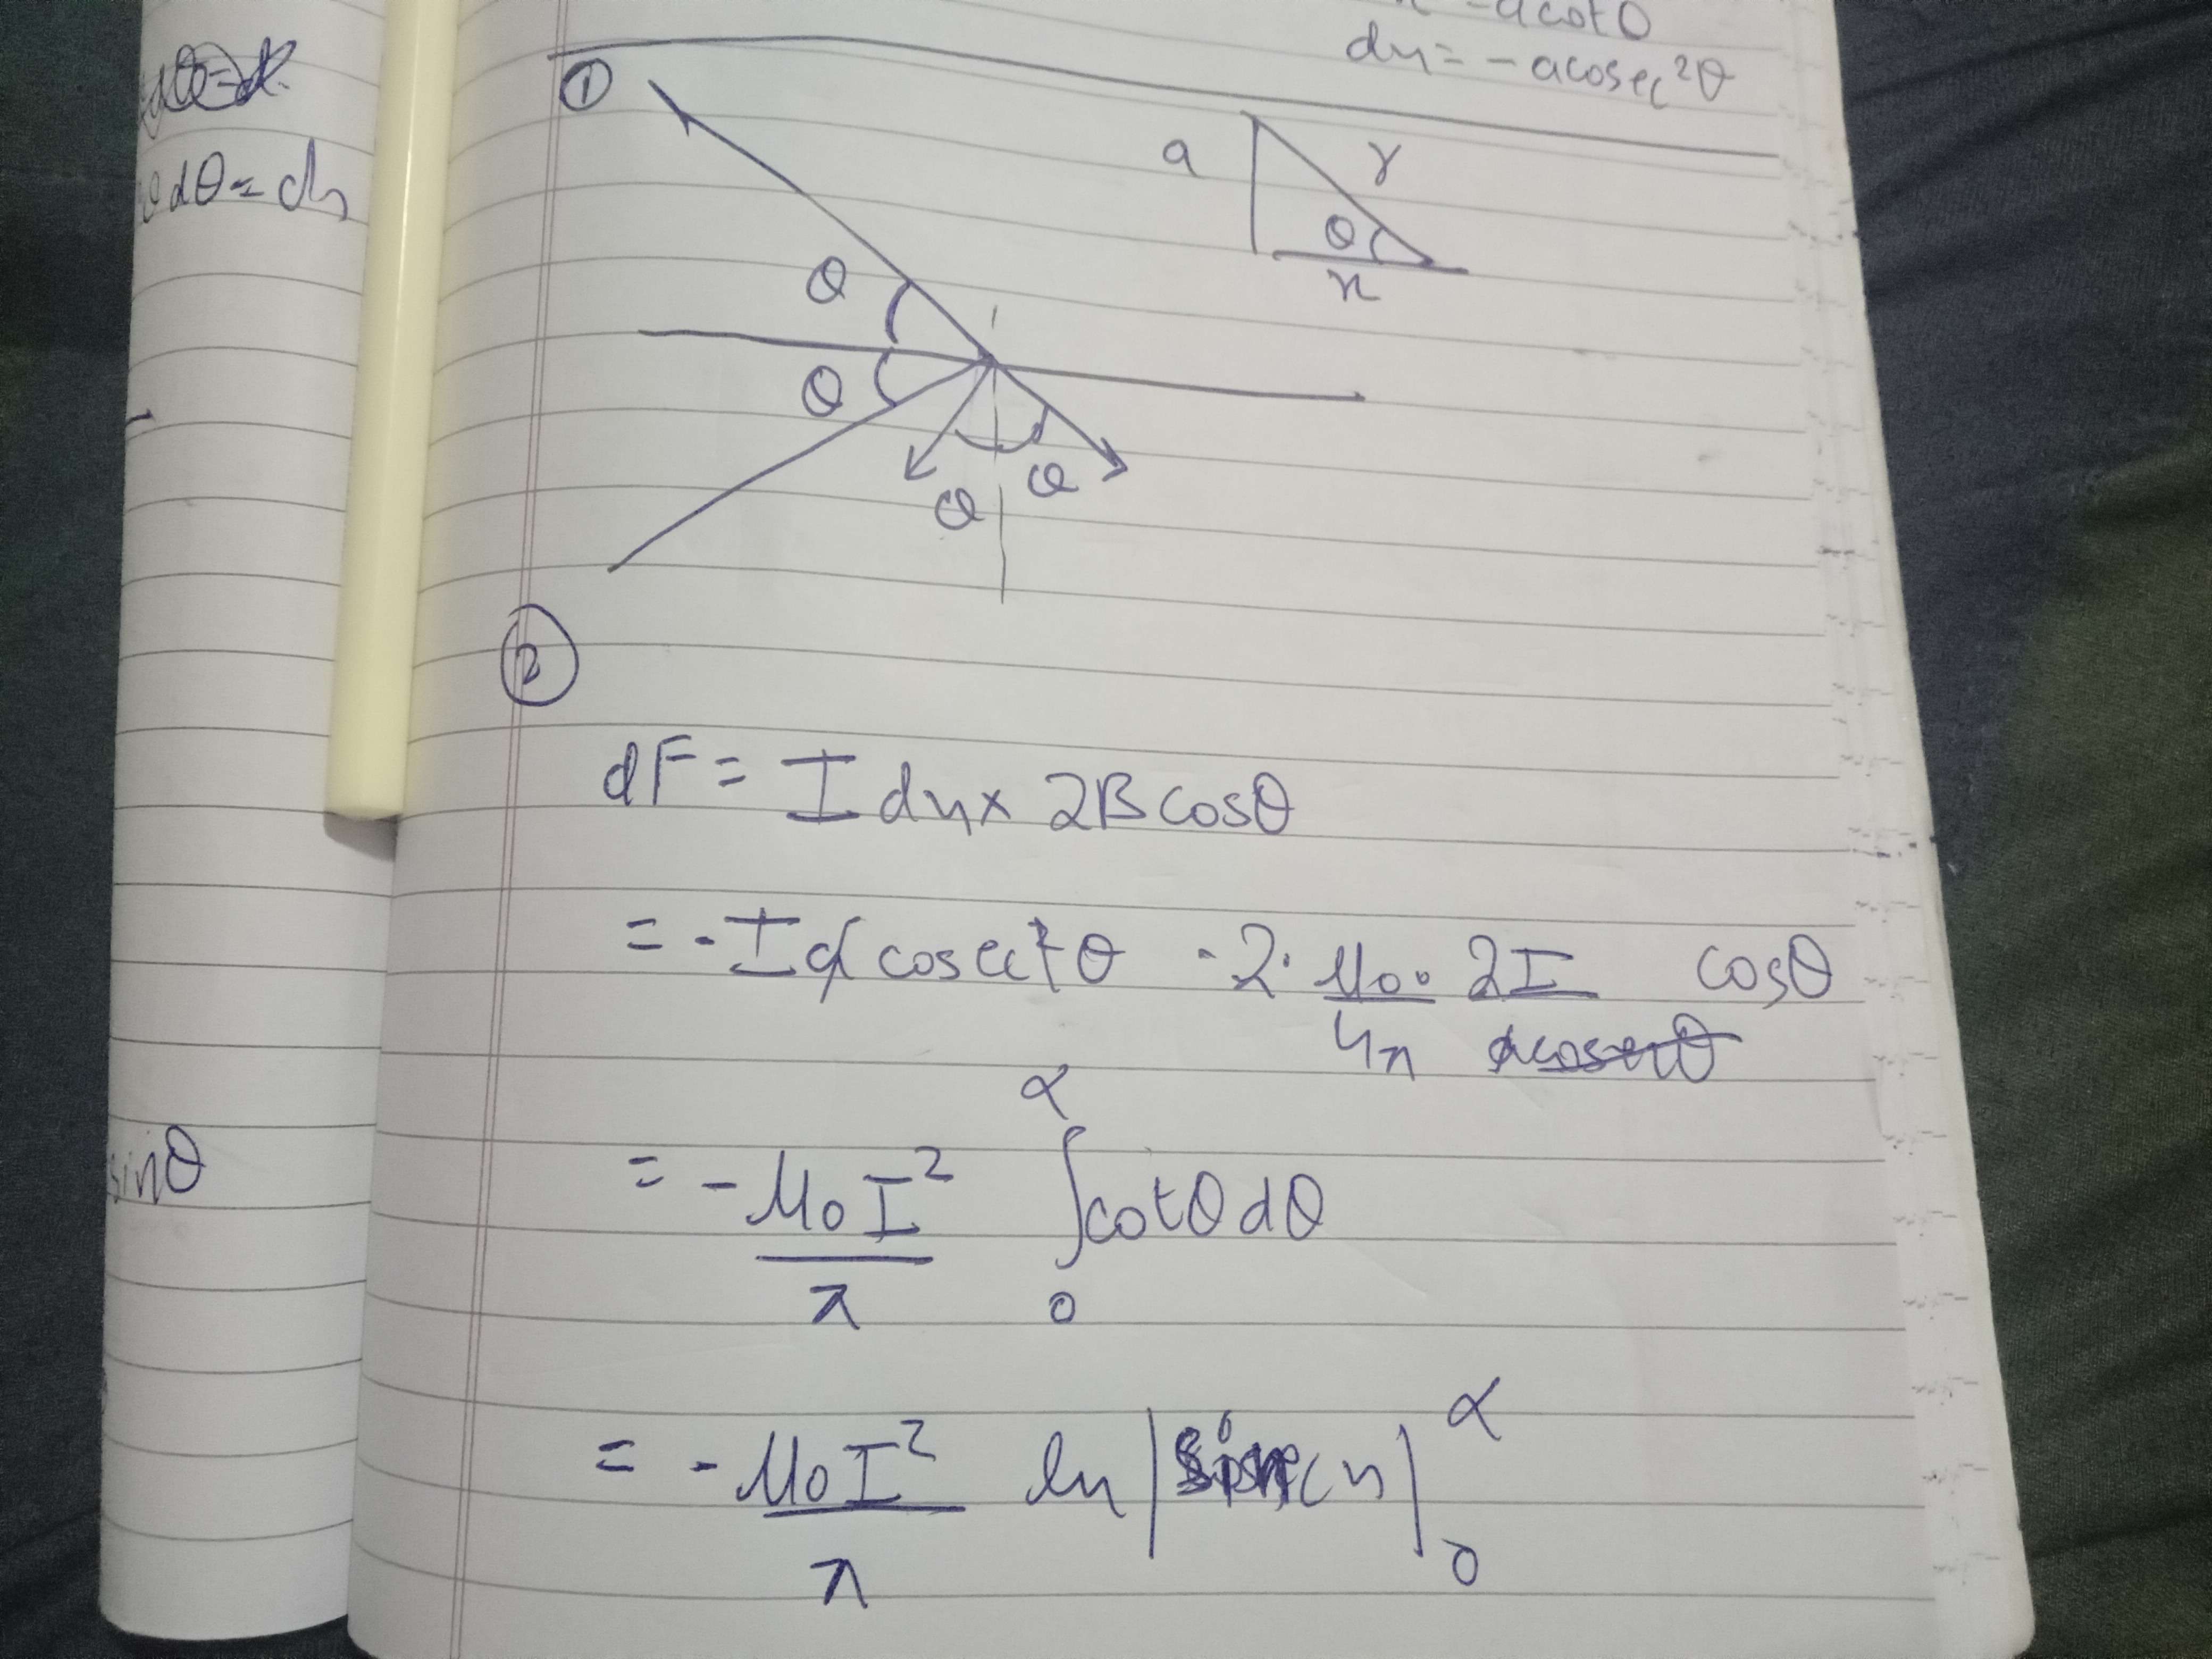 -acotθ
dx = - acosec²θ
θdθ = dx
①
a
r
θ
x
θ
θ
θ
θ
②
dF = I dx × 2B cosθ
= - I a cosec²θ · 2 · μ₀/4π · 2I/acosecθ cosθ
= - μ₀I²/π ∫₀^α cotθ dθ
sinθ
= - μ₀I²/π ln|sin(x)|₀^α